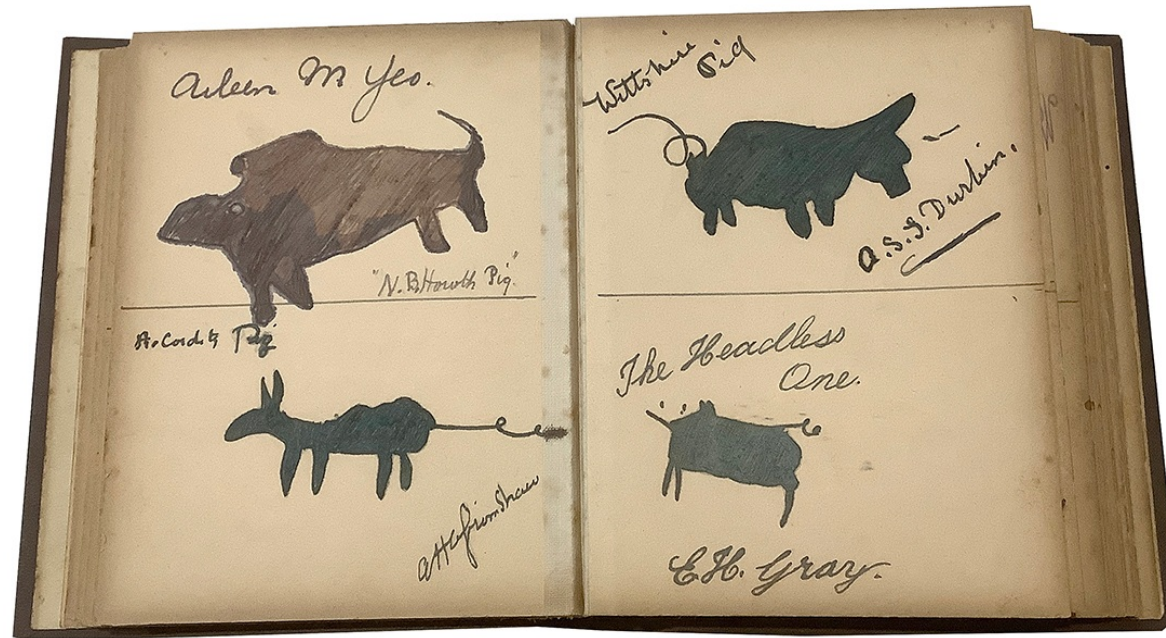 Aileen M Yeo.
"N. B. Howth Pig."
Pig
A H Grimshaw
Wiltshire
Pig
A. S. G. Durbin.
The Headless
One.
E. H. Gray.